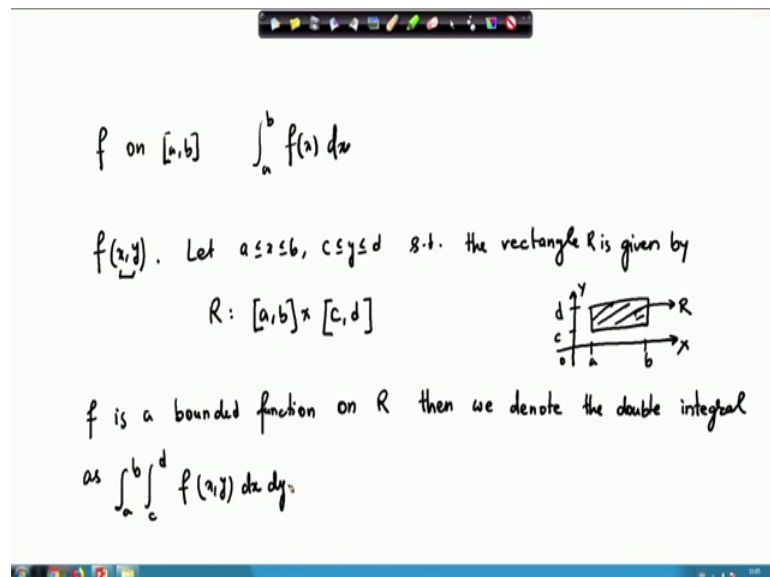 f on [a,b] ∫_a^b f(x) dx
f(x,y). Let a ≤ x ≤ b, c ≤ y ≤ d s.t. the rectangle R is given by
R: [a,b] × [c,d]
Y
d
R
c
0 a b X
f is a bounded function on R then we denote the double integral
as ∫_a^b ∫_c^d f(x,y) dx dy